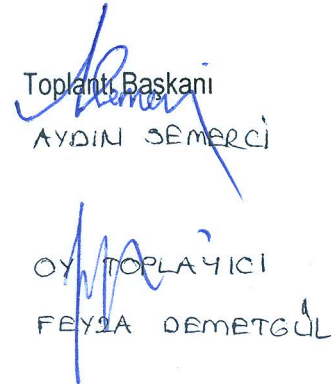 Toplantı Başkanı
AYDIN SEMERCİ
OY TOPLAYICI
FEYZA DEMETGÜL